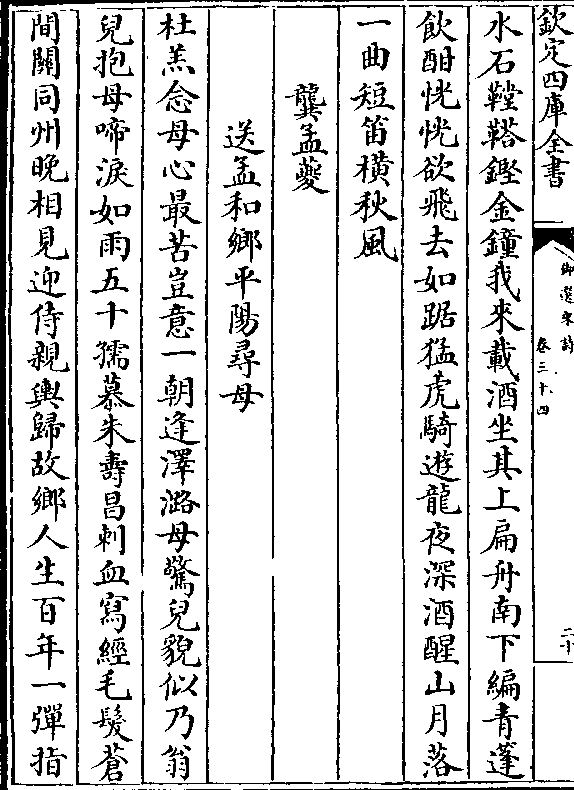 欽定四庫全書
御選宋詩
卷三十四
二十
水石鞺鞳鏗金鐘我來載酒坐其上扁舟南下編青蓬
飲酣恍恍欲飛去如踞猛虎騎遊龍夜深酒醒山月落
一曲短笛橫秋風
龔孟夔
送孟和鄉平陽尋母
杜羔念母心最苦豈意一朝逢澤潞母驚兒貌似乃翁
兒抱母啼淚如雨五十孺慕朱壽昌刺血寫經毛髮蒼
間關同州晚相見迎侍親輿歸故鄉人生百年一彈指